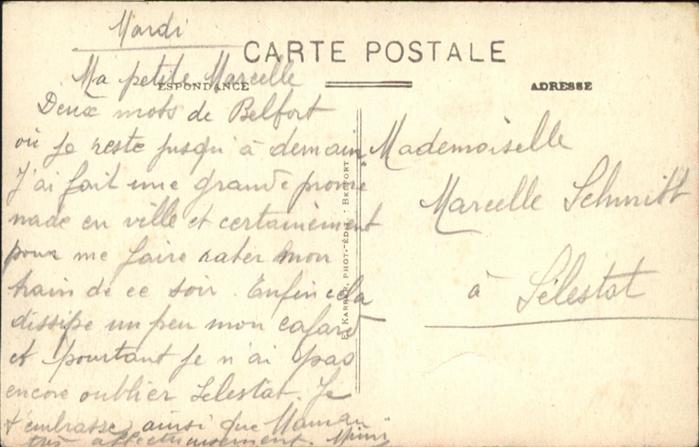 Mardi
CARTE POSTALE
ESPONDANCE
ADRESSE
Ma petite Marcelle
Deux mots de Belfort
où je reste jusqu'à demain
J'ai fait une grande prome
nade en ville et certainement
pour me faire rater mon
train de ce soir. Enfin cela
dissipe un peu mon cafard
et pourtant je n'ai pas
encore oublier Sélestat. Je
t'embrasse ainsi que Maman
très affectueusement. Mimi
PHOT.-ÉDIT. - BELFORT
Mademoiselle
Marcelle Schmitt
à Sélestat